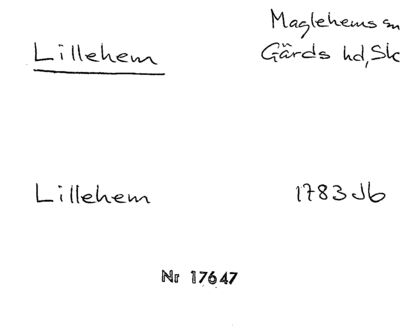 Maglehems sn
Lillehem Gärds hd, Sk
Lillehem 1783 Jb
Nr 17647